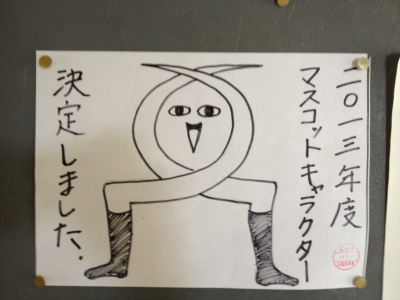 二〇一三年度
マスコットキャラクター
決定しました.